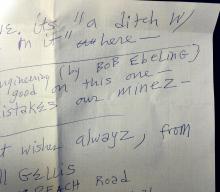 VE. it's "a ditch W/
m it" here —
ngineering (by BOB EBELING)
good on this one —
istakes our minez —
t wishes alwayz, from
ll GELLIS
BEACH Road